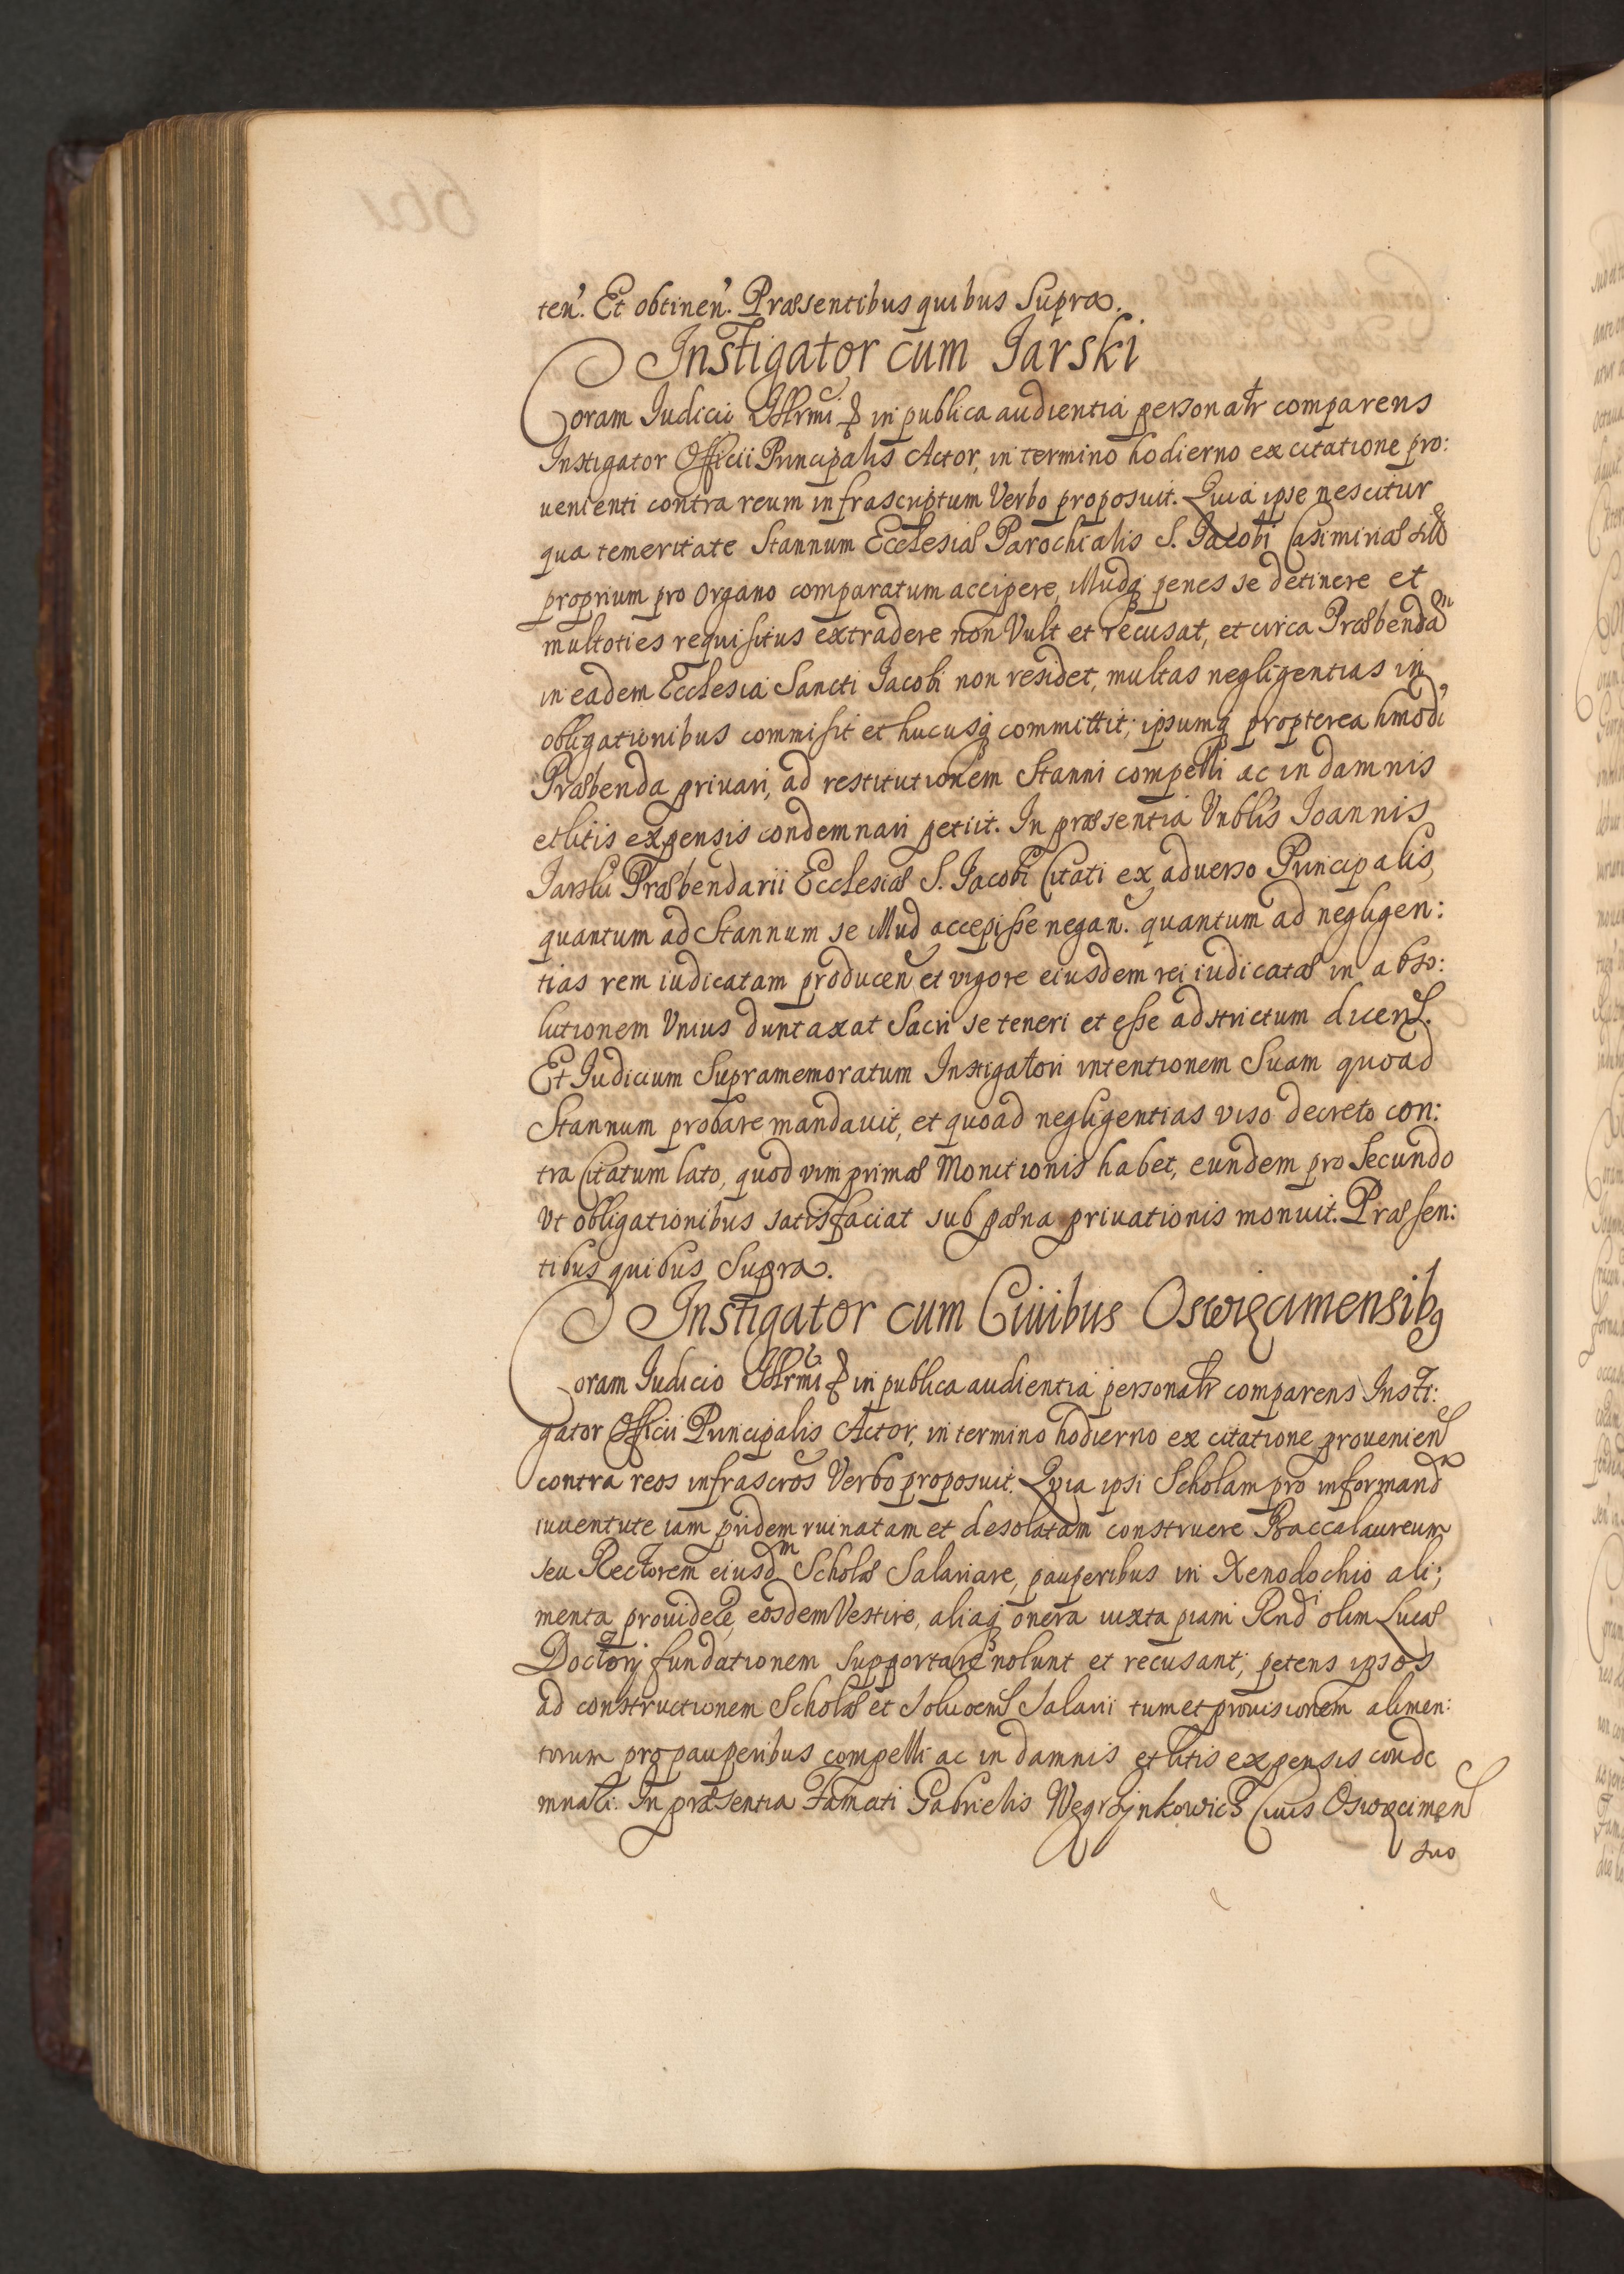 teń. Et obtineń. Præsentibus quibus Supra.
Instigator cum Jarski
Coram Judicii Illrmi in publica audientia personaltr comparens
Instigator Officii Principalis Actor, in termino hodierno ex citatione pro:
uenienti contra reum infrascriptum Verbo proposuit. Quia ipse nescitur
qua temeritate Stannum Ecclesiæ Parochialis S. Jacobi Casimiriæ
proprium pro Organo comparatum accipere, illudq penes se detinere et
multoties requisitus extradere non Vult et recusat, et circa Præbendam
in eadem Ecclesia Sancti Jacobi non residet, multas negligentias in
obligationibus commisit et hucusq committit, ipsumq propterea hmodi
Præbenda priuari, ad restitutionem Stanni compelli ac in damnis
et litis expensis condemnari petiit. In præsentia Vnblis Joannis
Jarski Præbendarii Ecclesiæ S. Jacobi Citati ex aduerso Principalis,
quantum ad Stannum se illud accepisse negań. quantum ad negligen:
tias rem iudicatam produceń et vigore eiusdem rei iudicatæ in abso:
lutionem Vnius duntaxat Sacri se teneri et esse adstrictum diceń.
Et Judicium Supramemoratum Instigatori intentionem Suam quoad
Stannum probare mandauit, et quoad negligentias viso decreto con:
tra Citatum lato, quod vim primæ Monitionis habet, eundem pro Secundo
Vt obligationibus satisfaciat sub pæna priuationis monuit. Præsen:
tibus quibus Supra.
Instigator cum Ciuibus Oswięcimensibq
Coram Judicio Illrmi in publica audientia personaltr comparens Insti:
gator Officii Principalis Actor, in termino hodierno ex citatione prouenień
contra reos infrascrõs Verbo proposuit. Quia ipsi Scholam pro informand
iuuentute iam pridem ruinatam et desolatam construere Baccalaureum
seu Rectorem eiusdm Scholæ Salariare, pauperibus in Xenodochio ali:
menta prouidere, eosdem Vestire, aliaq onera iuxta piam Rndi olim Lucæ
Doctorij fundationem Supportare nolunt et recusant, petens ipsos
ad constructionem Scholæ et Soluoem Salarii tum et prouisionem alimen:
torum pro pauperibus compelli ac in damnis et litis expensis conde
mnari. In præsentia Famati Gabrielis Węgrzynkowicz Ciuis Oswięcimeń
suo